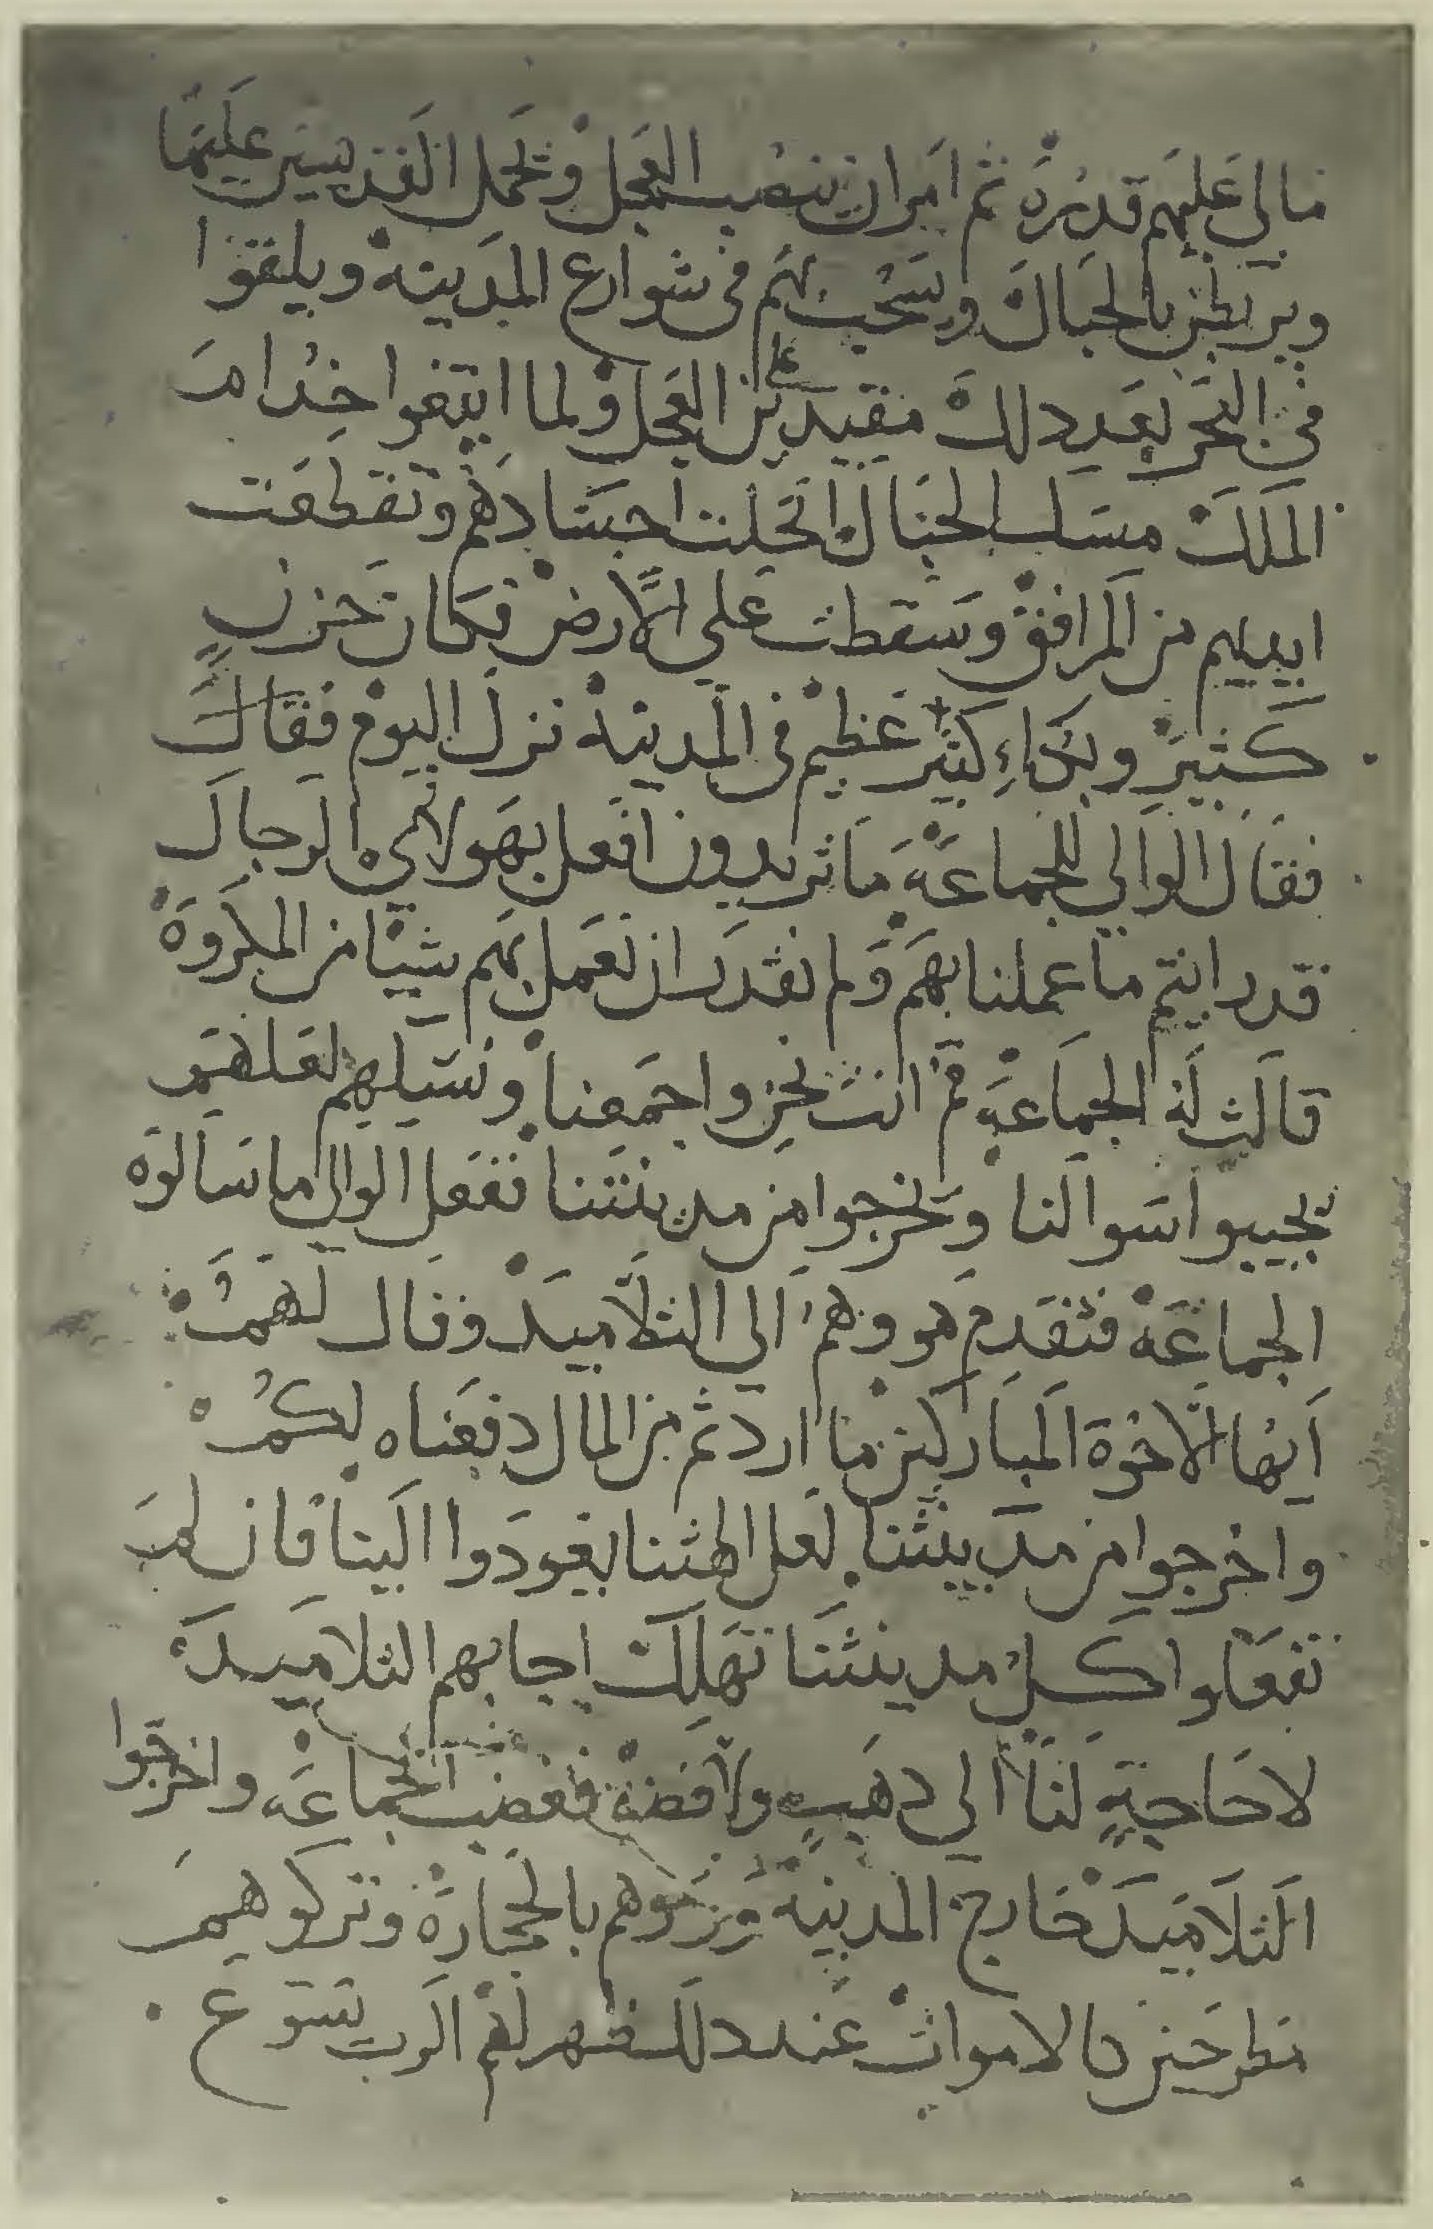 مالي عليهم قدره ثم امر ان ينصب العجل ويحمل القديسين عليها
ويربطن بالحبال ويسحب بهم في شوارع المدينه ويلقوا
في البحر بعد دلك مقيدين على العجل ولما ابتغوا خدام
الملك مسك الحبال انحلت اجسادهم وتقطعت
ايديهم من المرافق وسقطت علي الارض فكان حزن
كثير وبكاء كثير عظيم في المدينه نزل اليوم فقال
فقال الوالي للجماعه ما تريدون افعل بهولاي الرجال
قد رايتم ما عملنا بهم ولم نقدر ان نعمل بهم شيا من المكروه
قالت له الجماعه قم انت نحن واجمعنا ونسيلهم لعلهم
يجيبوا سوالنا ويخرجوا من مدينتنا ففعل الوالي ما سالوه
الجماعه فتقدم هو وهم الي التلاميد وقال لهم
ايها الاخوة المباركين ما اردتم من المال دفعناه لكم
واخرجوا من مدينتنا لعل الهتنا يعودوا الينا فان لم
تفعلوا كل مدينتنا تهلك اجابهم التلاميد
لا حاجة لنا الي دهب ولا فضه فغضب الجماعه واخرجوا
التلاميد خارج المدينه ورجموهم بالحجاره وتركوهم
مطرحين كالاموات عند دلك ظهر لهم الرب يسوع